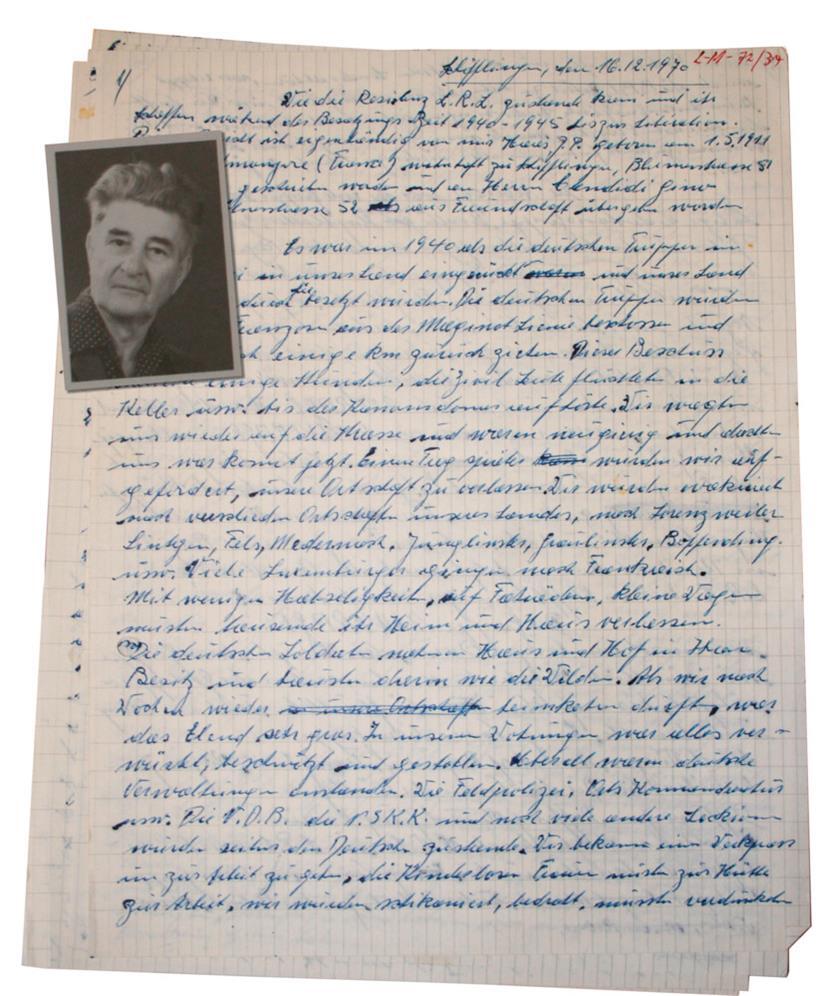 Schifflingen, den 16.12.1970 L-M-72/34
1/
Wie die Resistenz L.R.L. zustande kam und in
Schifflingen während der Besetzungs Zeit 1940-1945 bis zur Liberation.
ist eigenhändig von mir J.P. geboren am 1.5.1911
(France) wohnhaft zu Schifflingen, Blumenstrasse 81
geschrieben worden und an Herrn Candidi Geno
52 aus Freundschaft übergeben worden
Es war im 1940 als die deutschen Truppen in
in unser Land eingerückt und unser Land
durch die besetzt wurden. Die deutschen Truppen wurden
Franzosen aus der Maginot Linie beschossen und
einige km zurück ziehen. Dieser Beschuss
einige Stunden, die Zivil Leute flüchteten in die
Keller usw. bis der Kanonendonner aufhörte. Wir wagten
uns wieder auf die Strasse und waren neugierig und dachten
uns was kommt jetzt. Einen Tag später wurden wir auf-
gefordert, unsere Ortschaft zu verlassen. Wir wurden
nach Ortschaften unseres Landes, nach Lorenzweiler
Lintgen, Fels, Medernach, Junglinster, Graulinster, Bofferding.
usw. Viele Luxemburger gingen nach Frankreich.
Mit wenigen Habseligkeiten, auf Fahrrädern, kleine Wagen
mussten tausende ihr Heim und Haus verlassen.
Die deutschen Soldaten nahmen Haus und Hof in
Besitz und hausten darin wie die Wilden. Als wir nach
Wochen wieder in unsere Ortschaft heimkehren durften, war
das Elend sehr gros. In unseren Wohnungen war alles ver-
wühlt, beschmutzt und gestohlen. Ueberall waren deutsche
Verwaltungen entstanden. Die Feldpolizei, Orts Kommandantur
usw. Die V.D.B. die N.S.K.K. und noch viele andere
wurden seitens den Deutschen zustande. Wir bekamen einen
um zur Arbeit zu gehen, die Kinderlosen Frauen mussten zur Hütte
zur Arbeit, wir wurden schikaniert, bedroht, mussten verdunkeln